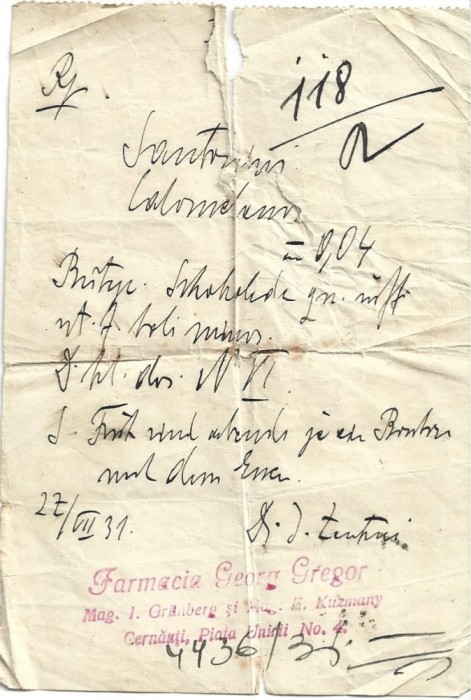 Rp.
118
Santonini
Calomelanos
aa 0,04
Schokolade
ut f. boli minor.
D. tal. dos. N VI.
S. Früh und abends je ein Bonbon
mit dem Essen.
27/VII 31.
Dr. J.
Farmacia Georg Gregor
Mag. I. Grünberg și Mag. E. Kuzmany
Cernăuți, Piața Unirii No. 4.
4936/31